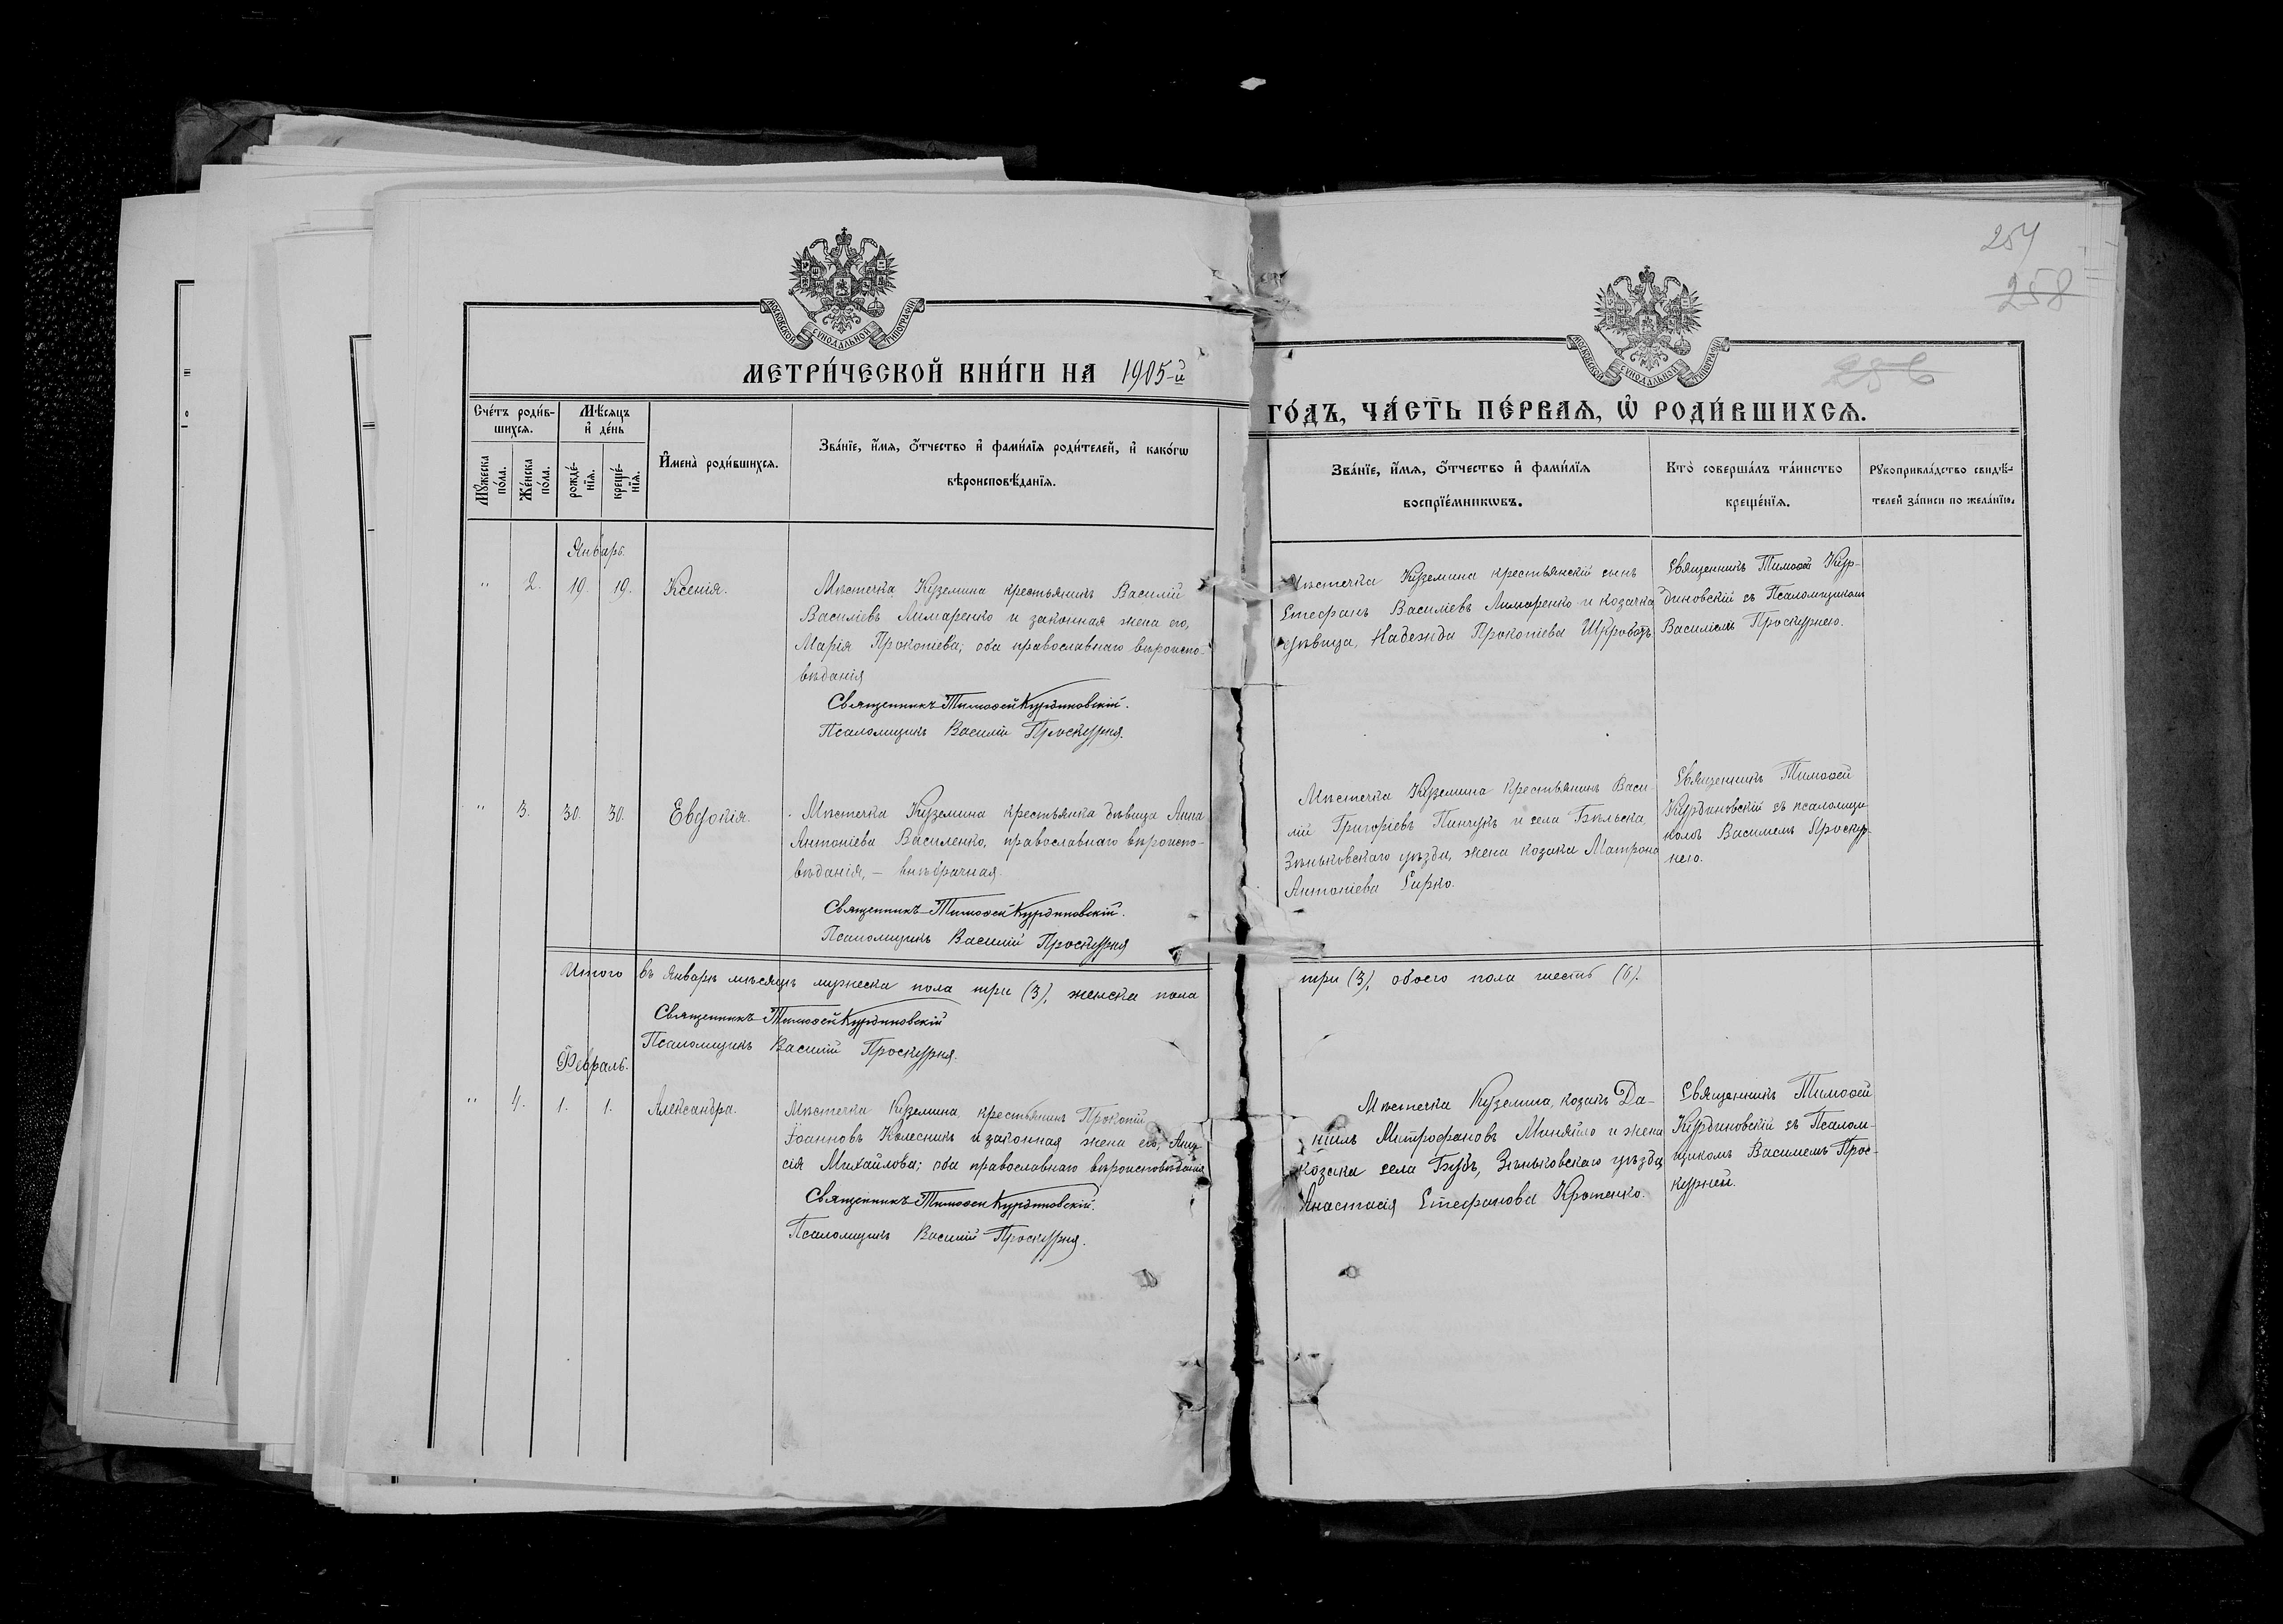 254
258
256
МОСКОВСКОЙ СѴНОДАЛЬНОЙ ТИПОГРАФІИ
МЕТРИ́ЧЕСКОЙ КНИ́ГИ НА 1905-й
МОСКОВСКОЙ СѴНОДАЛЬНОЙ ТИПОГРАФІИ
ГО́ДЪ, ЧА́СТЬ ПЕ́РВАѦ, Ѡ҆ РОДИ́ВШИХСѦ.
Сче́тъ роди́в-
шихсѧ.
Мꙋ́жеска
по́ла.
Же́нска
по́ла.
Мѣ́сяцъ
и҆ де́нь
рожде́-
нїѧ.
креще́-
нїѧ.
И҆мена̀ роди́вшихсѧ.
Зва́нїе, и҆́мѧ, ѻ҆́тчество и҆ фами́лїѧ роди́телей, и҆ како́гѡ
вѣроисповѣ́данїѧ.
Зва́нїе, и҆́мѧ, ѻ҆́тчество и҆ фами́лїѧ
воспрїе́мникѡвъ.
Кто̀ соверша́лъ та́инство
креще́нїѧ.
Рꙋкоприкла́дство свидѣ́-
телей за́писи по жела́нїю.
Январь.
" 2. 19. 19. Ксенія.
Мѣстечка Куземина крестьянинъ Василій
Василіевъ Лимаренко и законная жена его,
Марія Прокопіева; оба православнаго вѣроиспо-
вѣданія
Священникъ Тимоѳей Курдиновскій.
Псаломщикъ Василій Проскурня.
Мѣстечка Куземина крестьянскій сынъ
Стефанъ Василіевъ Лимаренко и козачка
дѣвица, Надежда Прокопіева Шкроботъ
Священникъ Тимоѳей Кур-
диновскій съ Псаломщикомъ
Василіемъ Проскурнею.
" 3. 30. 30. Евдокія.
Мѣстечка Куземина крестьянка дѣвица Анна
Антоніева Василенко, православнаго вѣроиспо-
вѣданія, – внѣбрачная.
Священникъ Тимоѳей Курдиновскій.
Псаломщикъ Василій Проскурня
Мѣстечка Куземина крестьянинъ Васи-
лій Григоріевъ Пинчукъ и села Бѣльска,
Зѣньковскаго уѣзда, жена козака Матрона
Антоніева Сирко.
Священникъ Тимоѳей
Курдиновскій съ псаломщи-
комъ Василіемъ Проскур-
нею.
Итого въ Январѣ мѣсяцѣ мужеска пола три (3), женска пола
три (3), обоего пола шесть (6).
Священникъ Тимоѳей Курдиновскій
Псаломщикъ Василій Проскурня.
Февраль.
" 4. 1. 1. Александра.
Мѣстечка Куземина крестьянинъ Прокопій
Іоанновъ Колесникъ и законная жена его, Ани-
сія Михайлова; оба православнаго вѣроисповѣданія
Священникъ Тимоѳей Курдиновскій.
Псаломщикъ Василій Проскурня.
Мѣстечка Куземина, козакъ Да-
ніилъ Митрофановъ Миняйло и жена
козака села Будъ, Зѣньковскаго уѣзда
Анастасія Стефанова Кротенко.
Священникъ Тимоѳей
Курдиновскій съ Псалом-
щикомъ Василіемъ Прос-
курней.